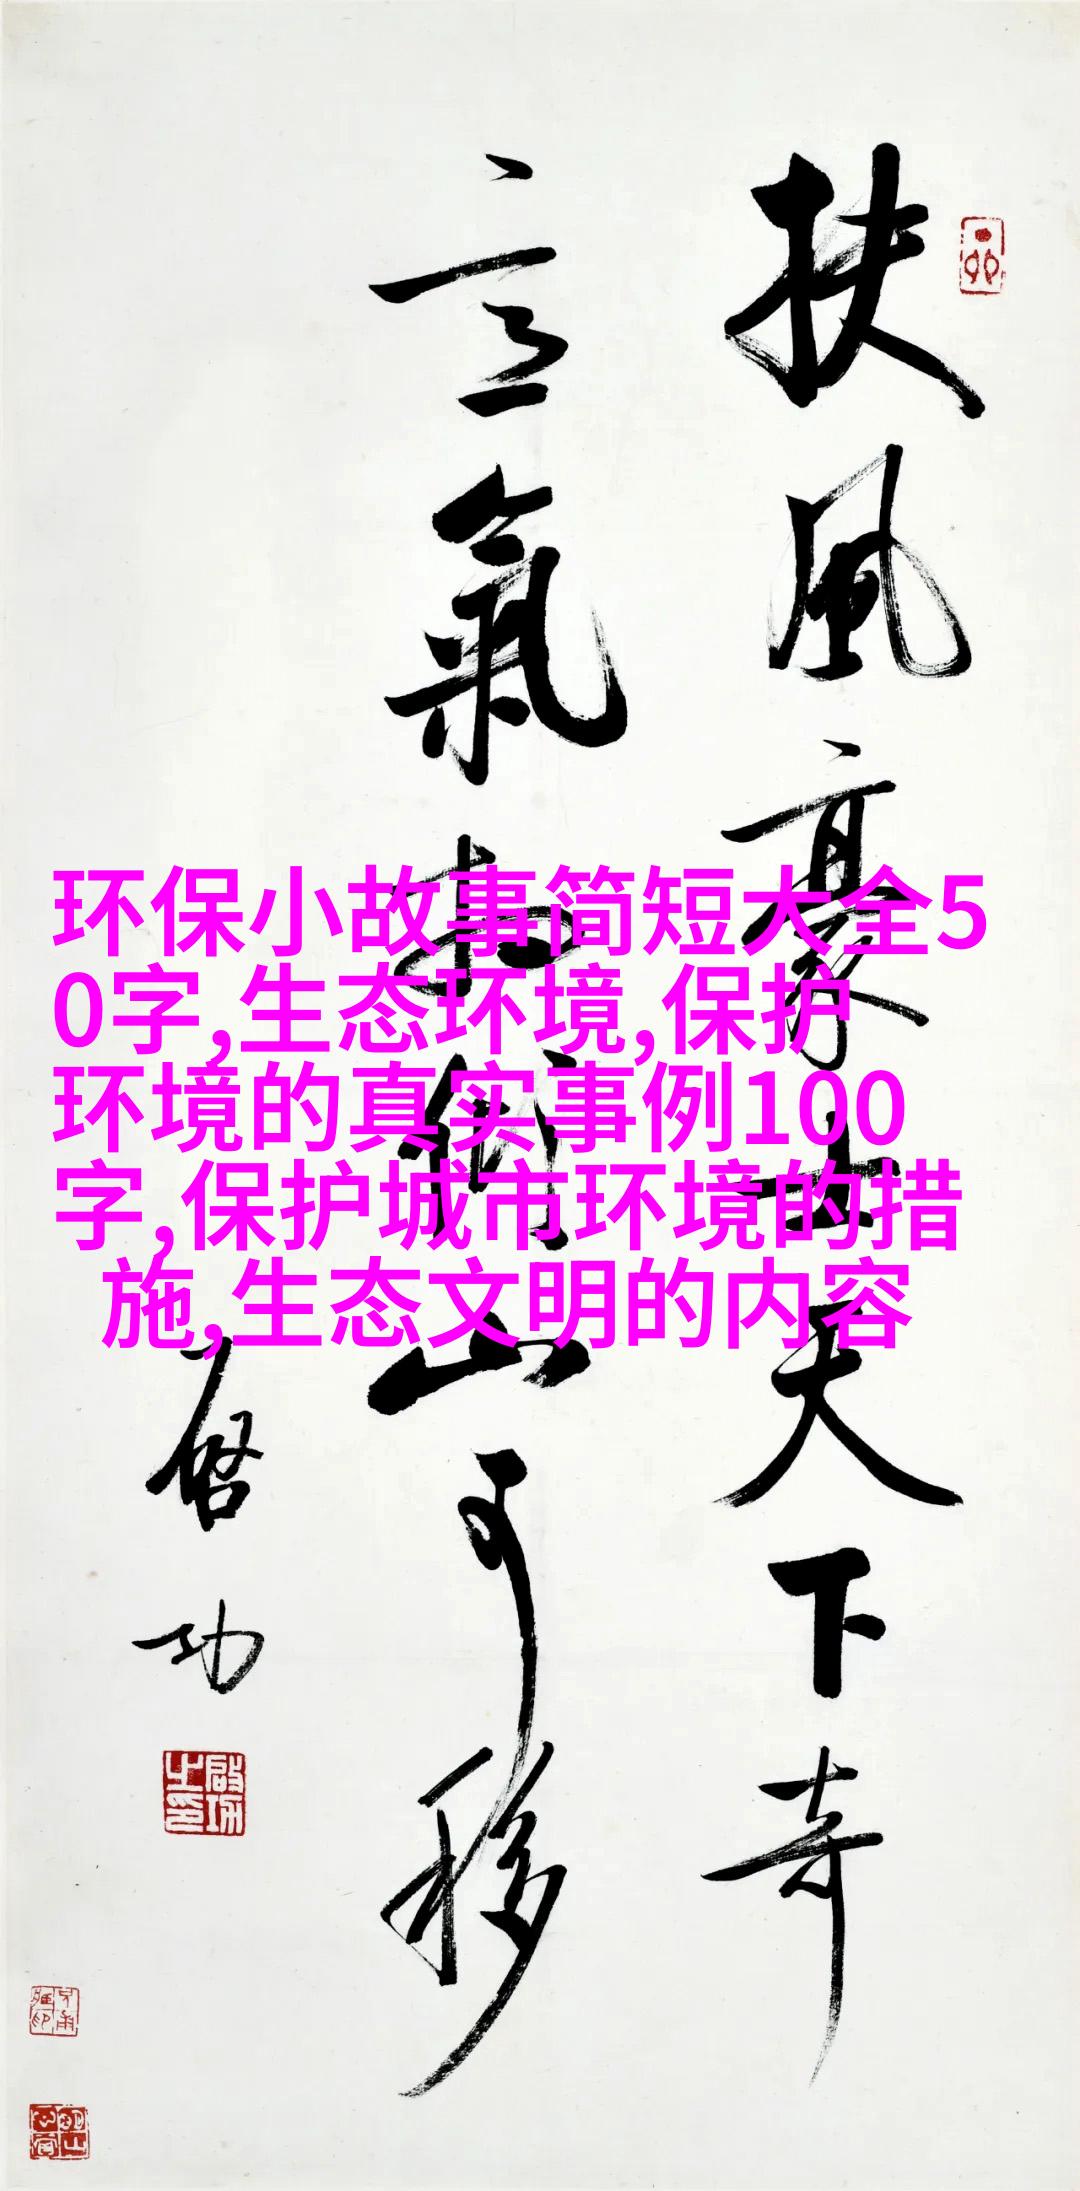 扶風豪士天下奇
意氣相傾山可移
啓功
啟功之印
环保小故事简短大全5
0字,生态环境,保护
环境的真实事例100
字,保护城市环境的措
施,生态文明的内容